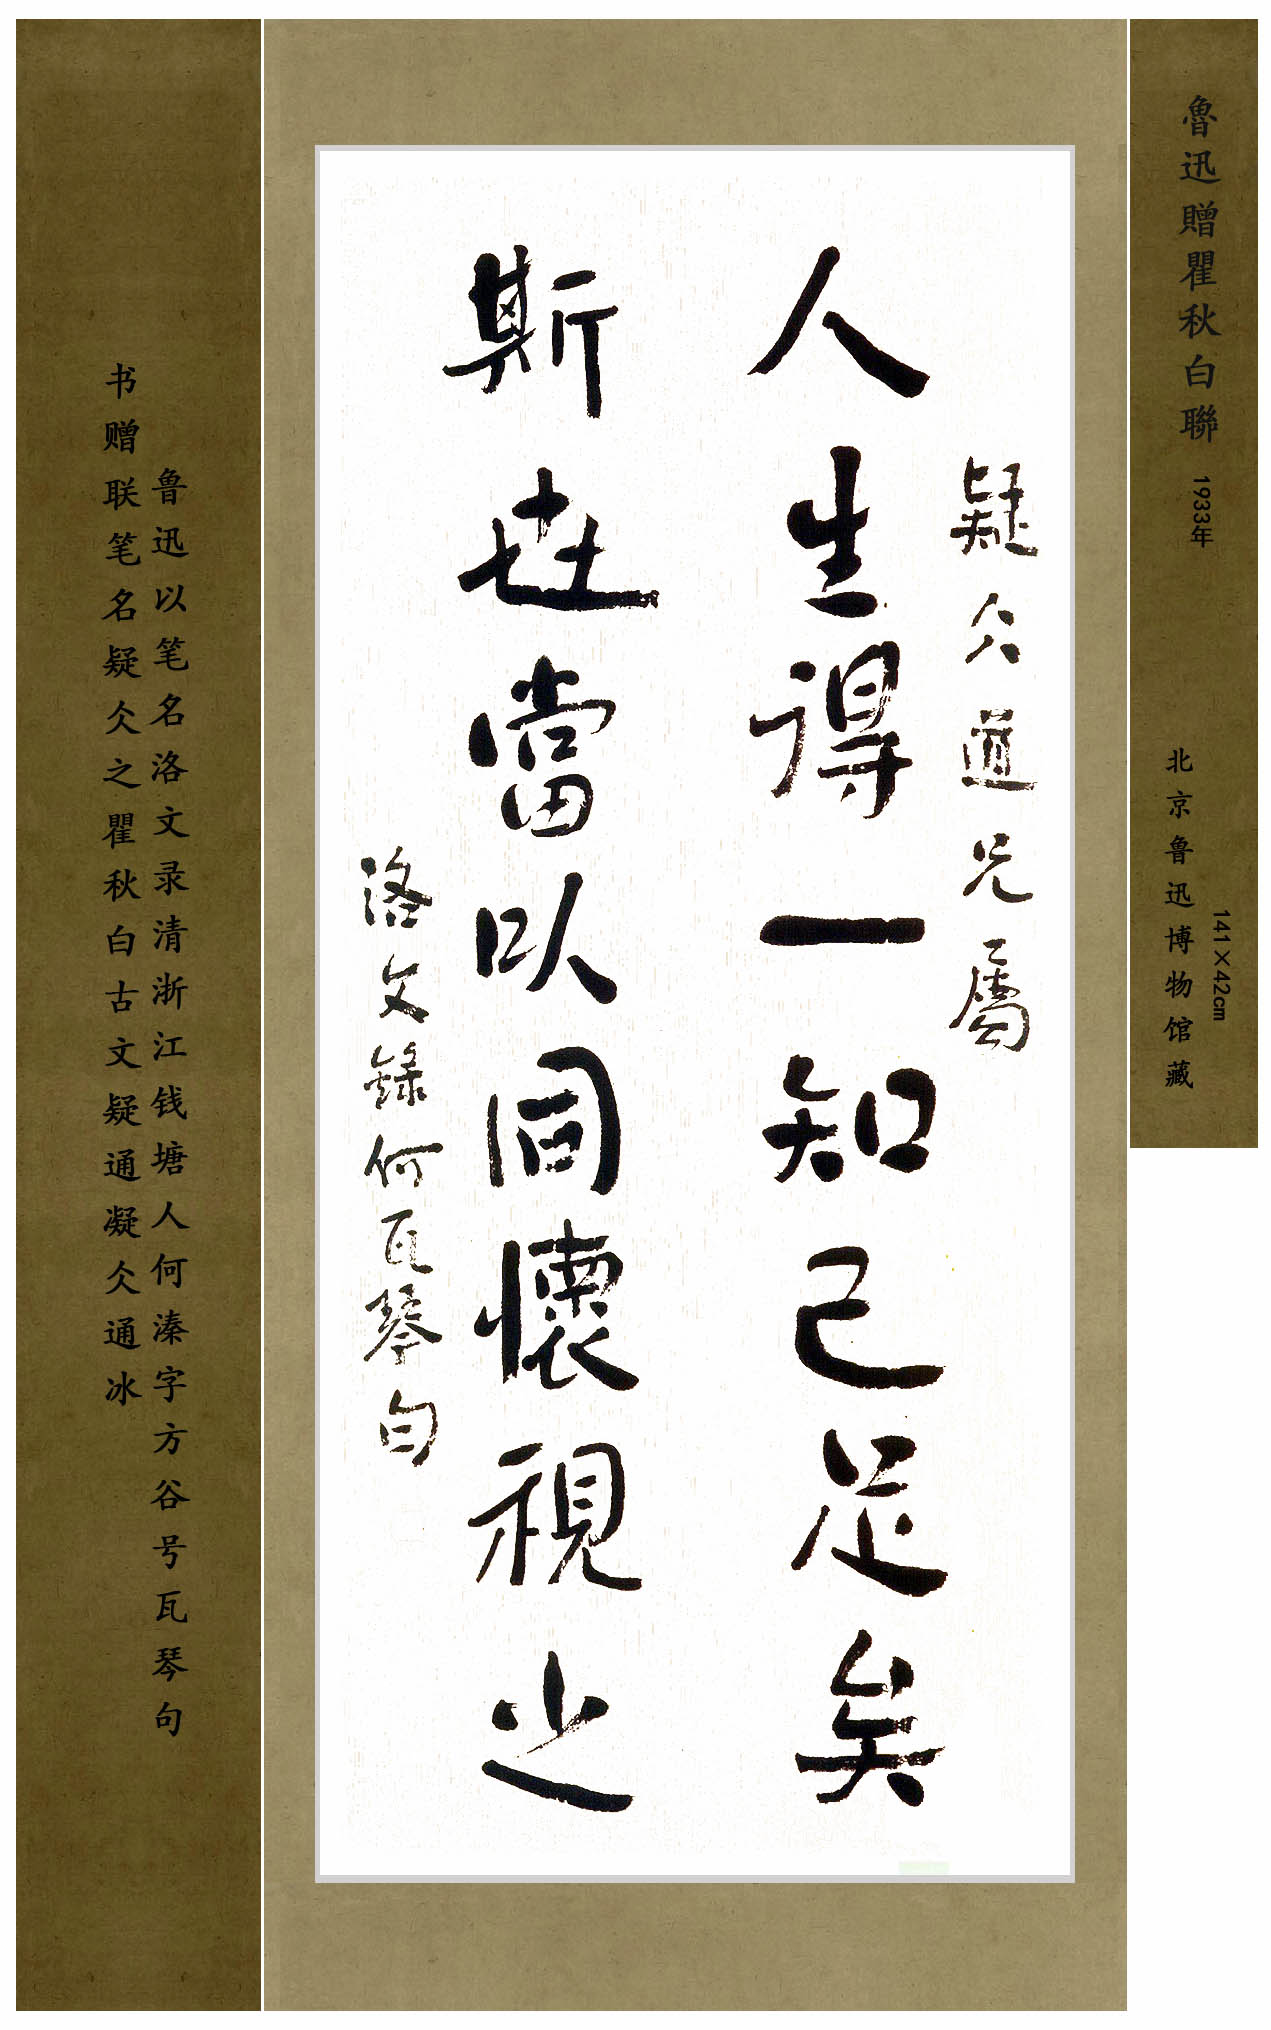 魯迅贈瞿秋白聯
1933年
141×42cm
北京鲁迅博物馆藏
疑仌道兄屬
人生得一知己足矣
斯世當以同懷視之
洛文錄何瓦琴句
鲁迅以笔名洛文录清浙江钱塘人何溱字方谷号瓦琴句
书赠联笔名疑仌之瞿秋白古文疑通凝仌通冰